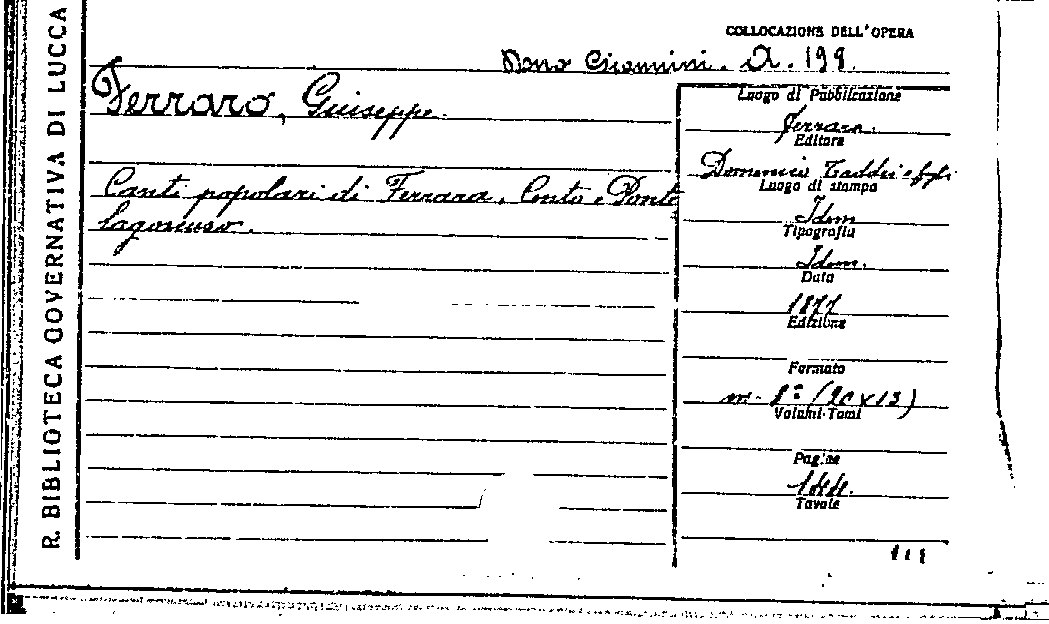 R. BIBLIOTECA GOVERNATIVA DI LUCCA
COLLOCAZIONE DELL'OPERA
Dono A. 198.
Ferraro, Giuseppe.
Canti popolari di Ferrara, Cento e Ponte
lagoscuro.
Luogo di Pubblicazione
Ferrara.
Editore
Domenico Taddei e figli
Luogo di stampa
Idem
Tipografia
Idem.
Data
1877
Edizione
Formato
in-8º (20x13)
Volumi-Tomi
Pagine
Tavole